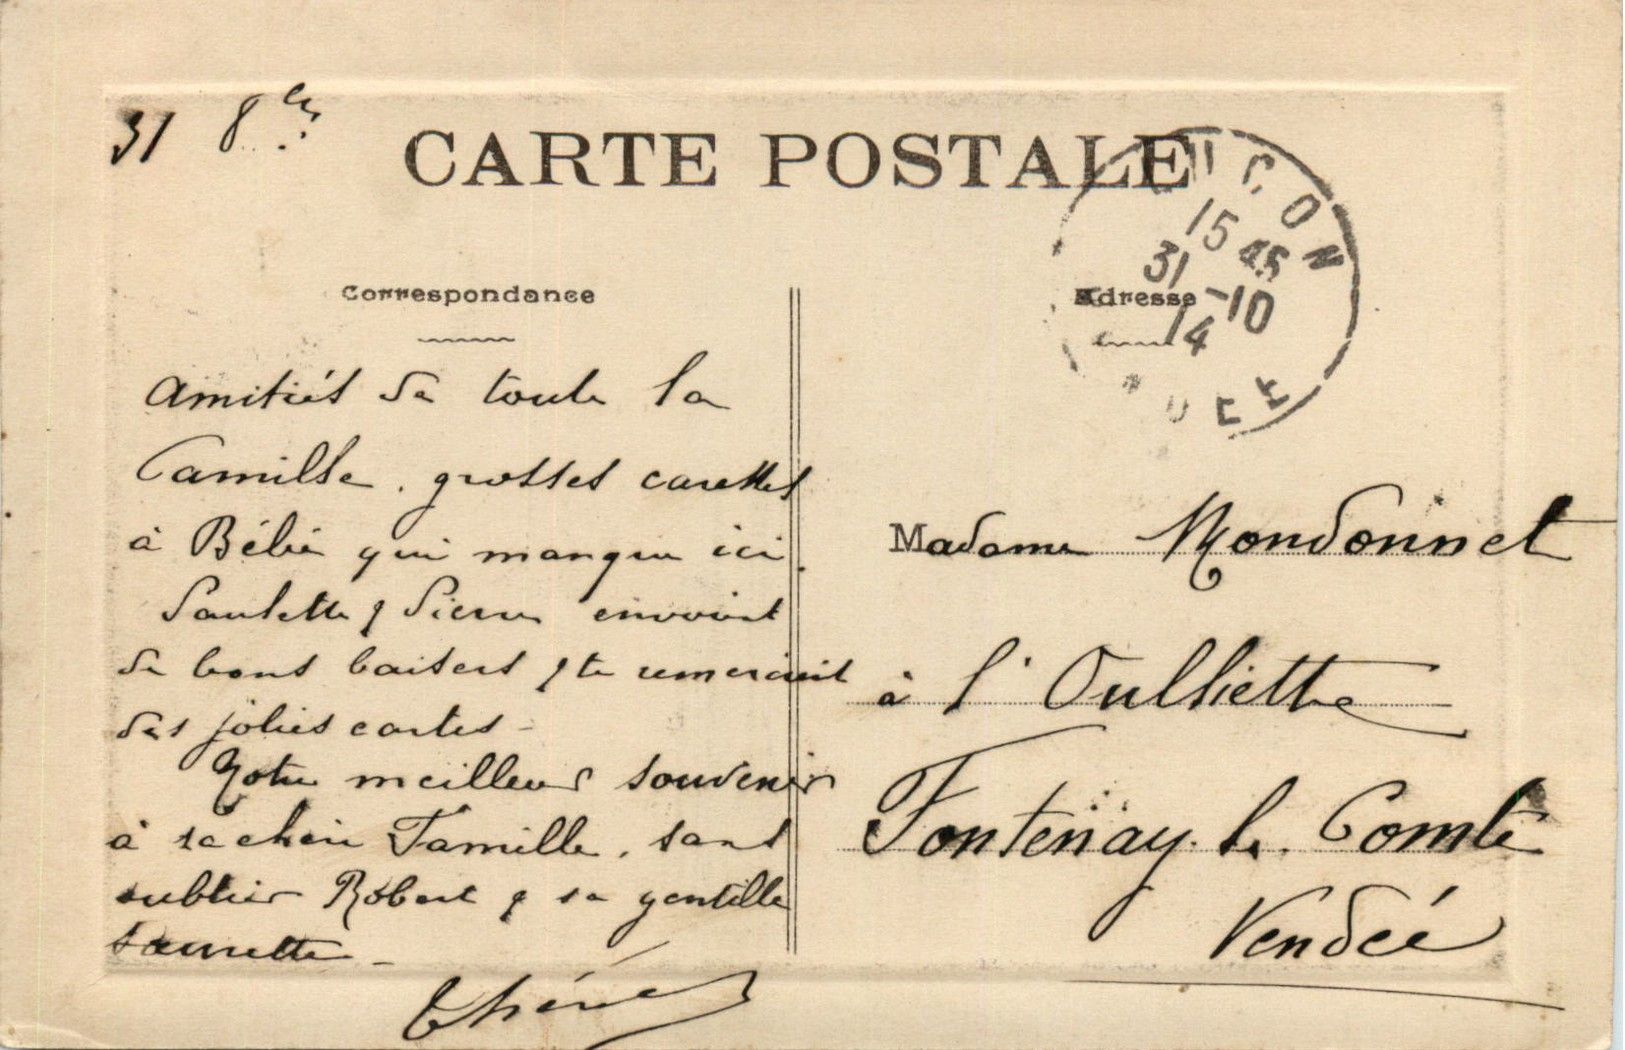 31 8bre
CARTE POSTALE
LUÇON
15 45
31 -10
14
VENDÉE
Correspondance
Adresse
Amitiés de toute la
Camille. grosses caresses
à Bébé qui manque ici.
Paulette & Pierre envoient
de bons baisers & te remercient
des jolies cartes -
Notre meilleur souvenir
à ta chère Famille, sans
oublier Robert & sa gentille
sœurette -
Madame Mondonnet
à l'Oulliette
Fontenay. le. Comte
Vendée